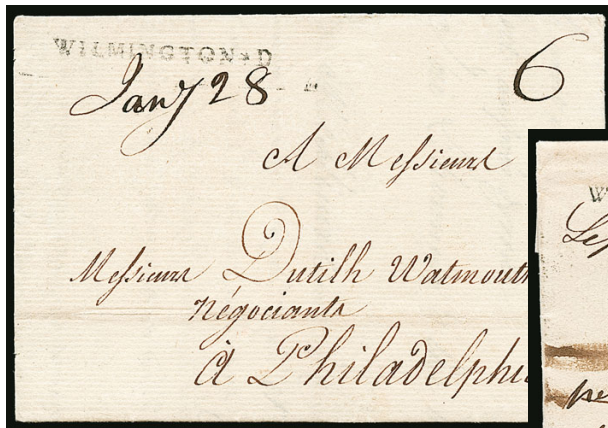 WILMINGTON*D
Jany 28
6
A Messieurs
Messieurs Dutilh Watmouth
Négociants
à Philadelphi